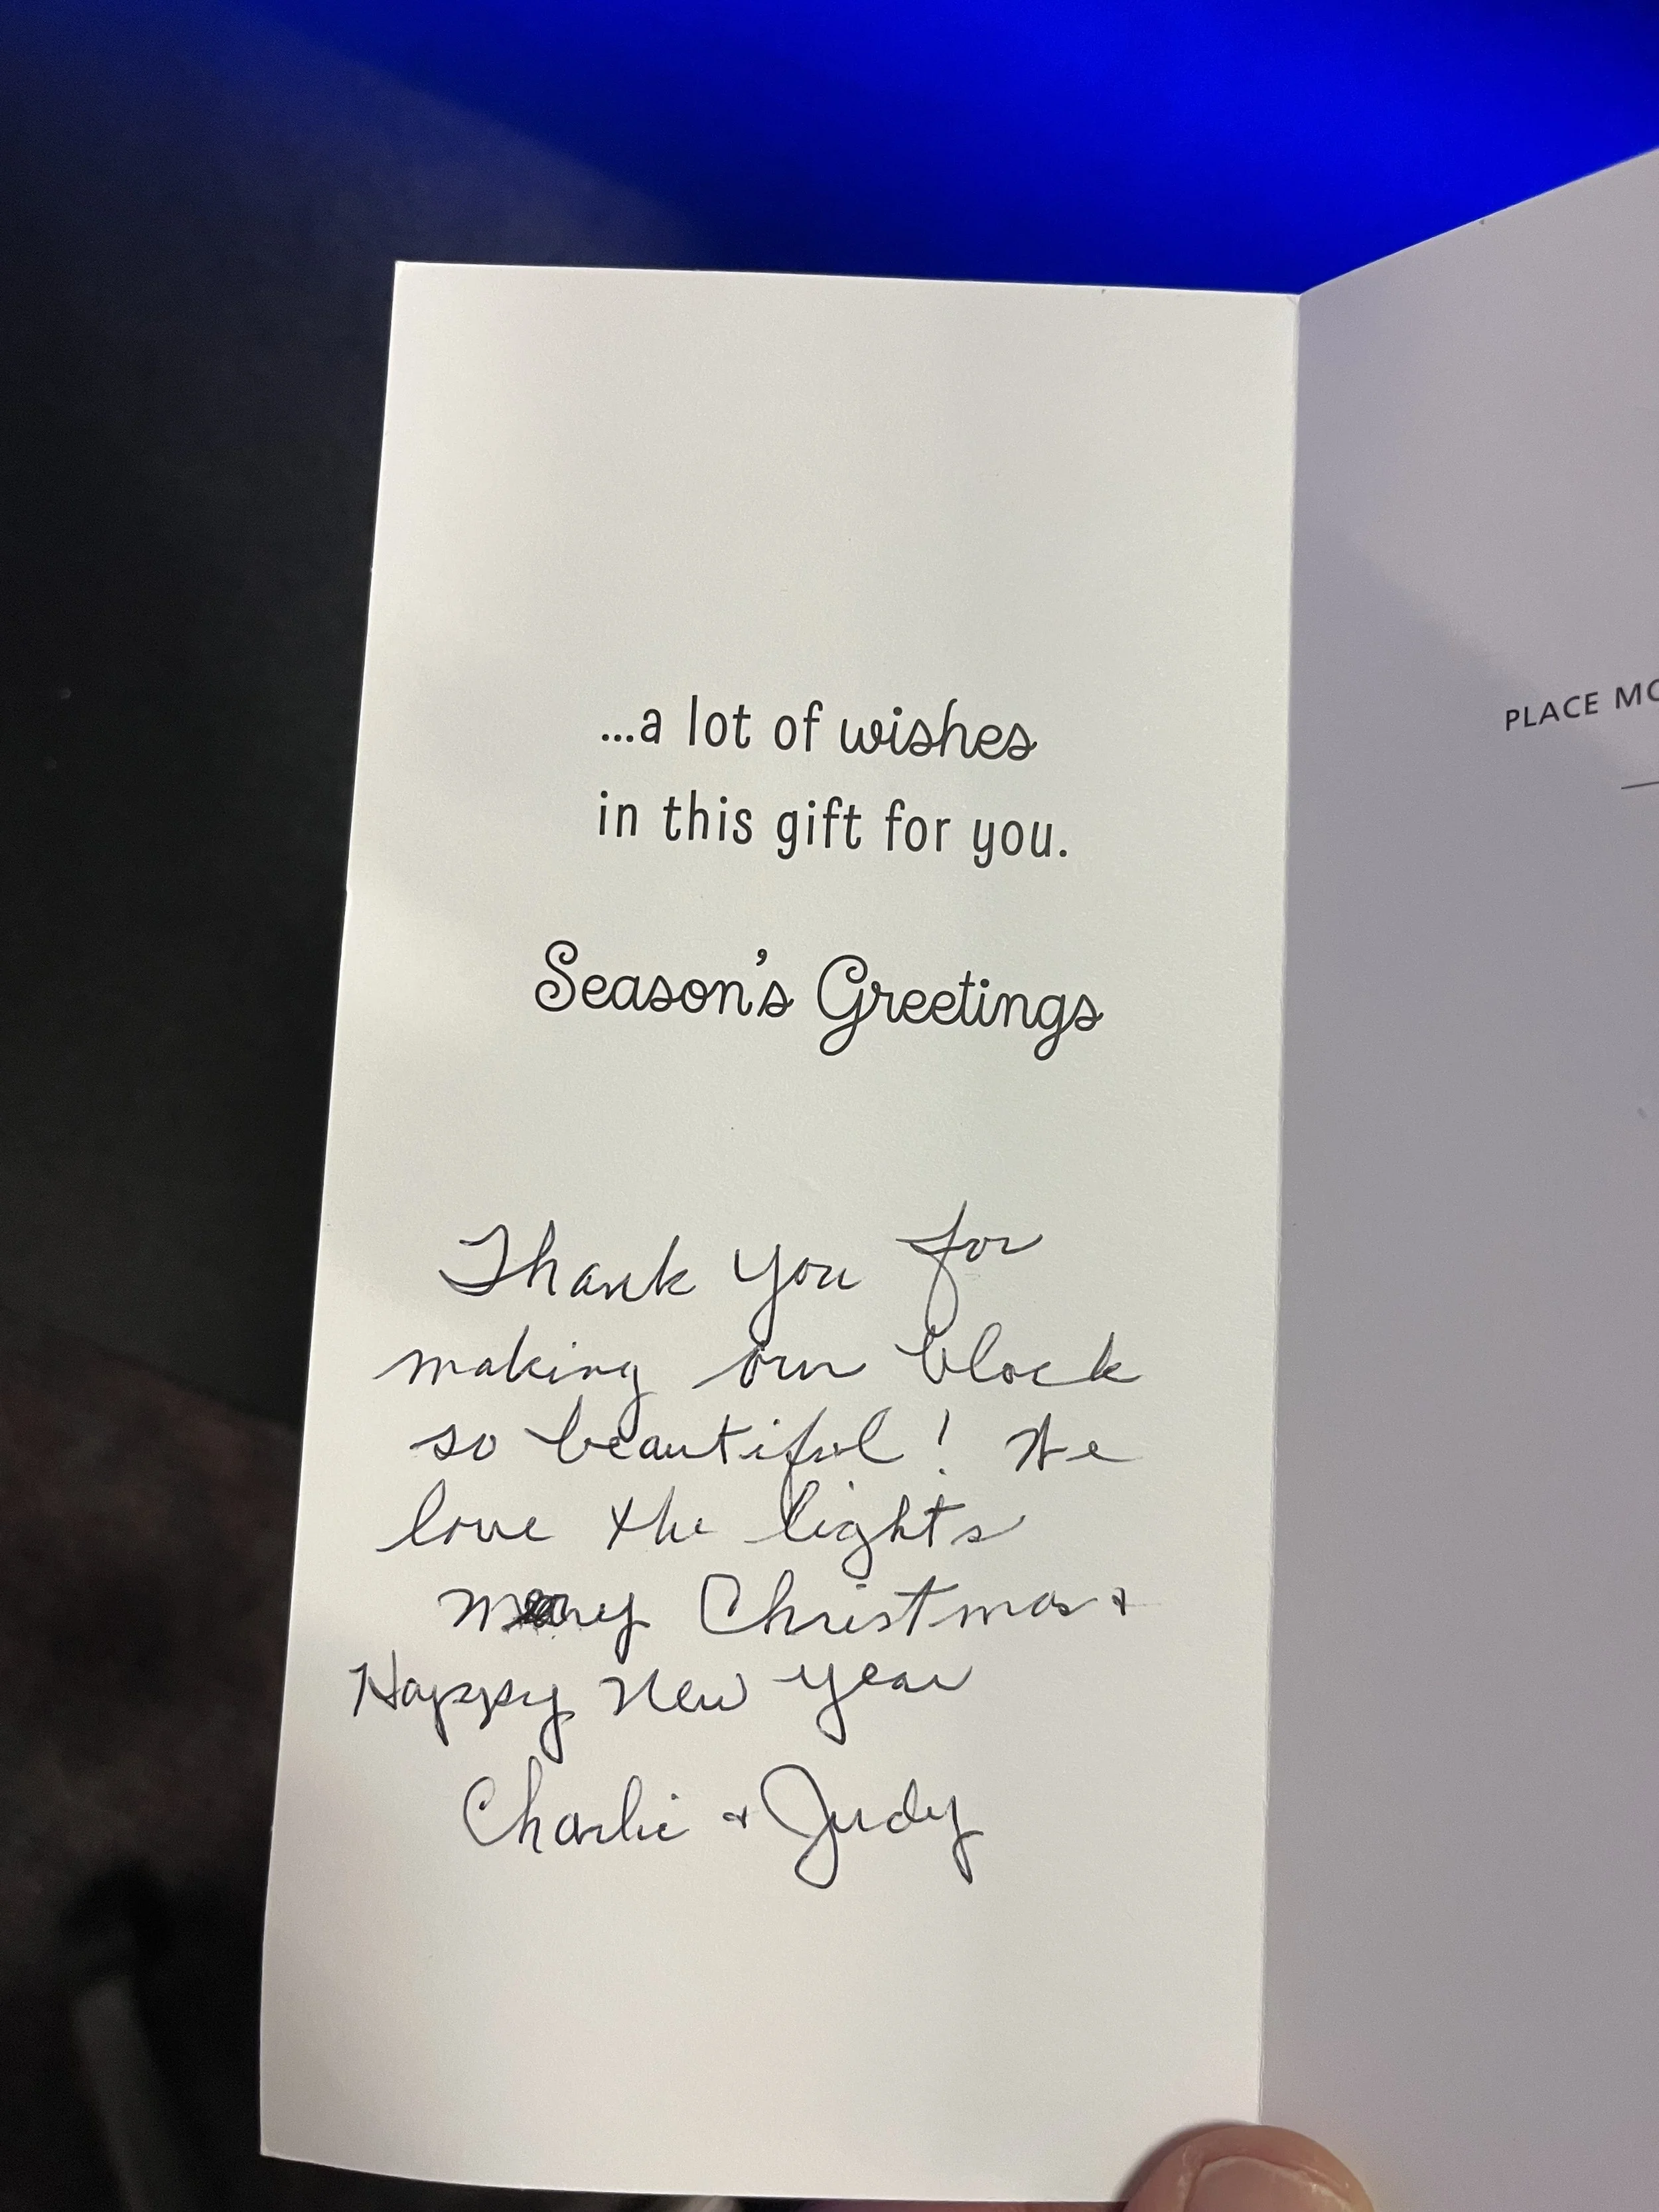 ...a lot of wishes
in this gift for you.
Season's Greetings
Thank you for
making our block
so beautiful! We
love the lights
Merry Christmas &
Happy New Year
Charlie & Judy
PLACE MO